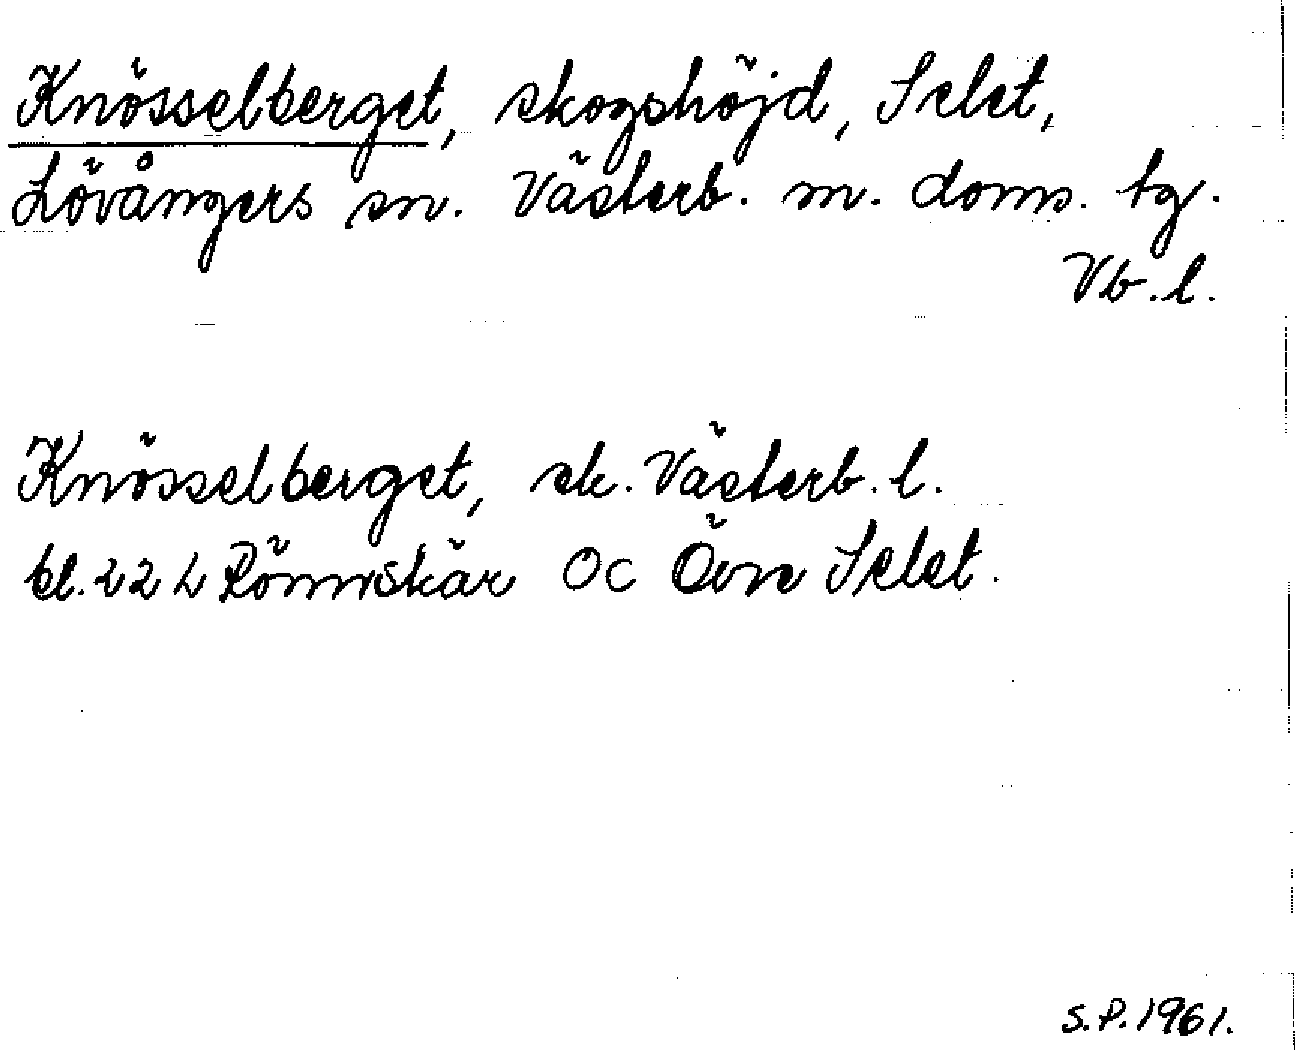 Knösselberget, skogshöjd, Selet,
Lövångers sn. Västerb. m. doms. tg.
Vb. l.
Knösselberget, sk. Västerb. l.
bl. 22 L Rönnskär OC Övre Selet.
S.P. 1961.